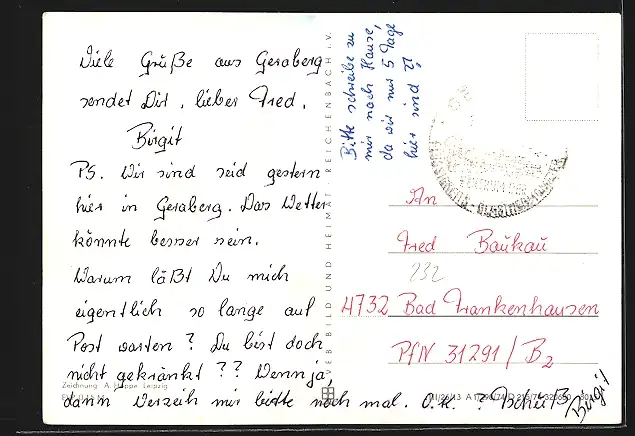 Viele Grüße aus Geraberg
sendet Dir, lieber Fred,
Birgit
PS. Wir sind seid gestern
hier in Geraberg. Das Wetter
könnte besser sein.
Warum läßt Du mich
eigentlich so lange auf
Post warten? Du bist doch
nicht gekränkt?? Wenn ja,
dann verzeih mir bitte noch mal. O.K.? Tschüß Birgit
Bitte schreibe zu
mir nach Hause,
da wir nur 5 Tage
hier sind !?
VEB BILD UND HEIMAT REICHENBACH i.V.
An
Fred Baukau
232
4732 Bad Frankenhausen
PfN 31291/B2
Zeichnung A. Hoppe Leipzig